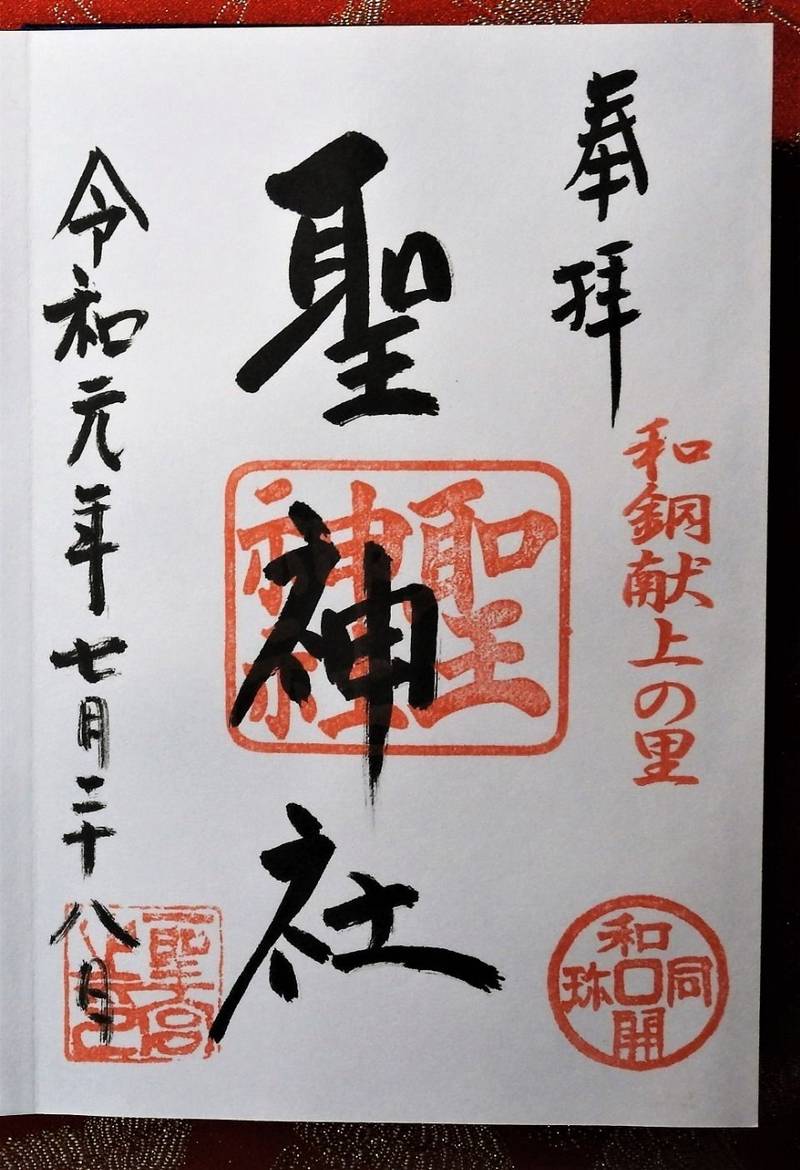 奉拝
和銅献上の里
和同開珎
聖神社
聖神社
令和元年七月二十八日